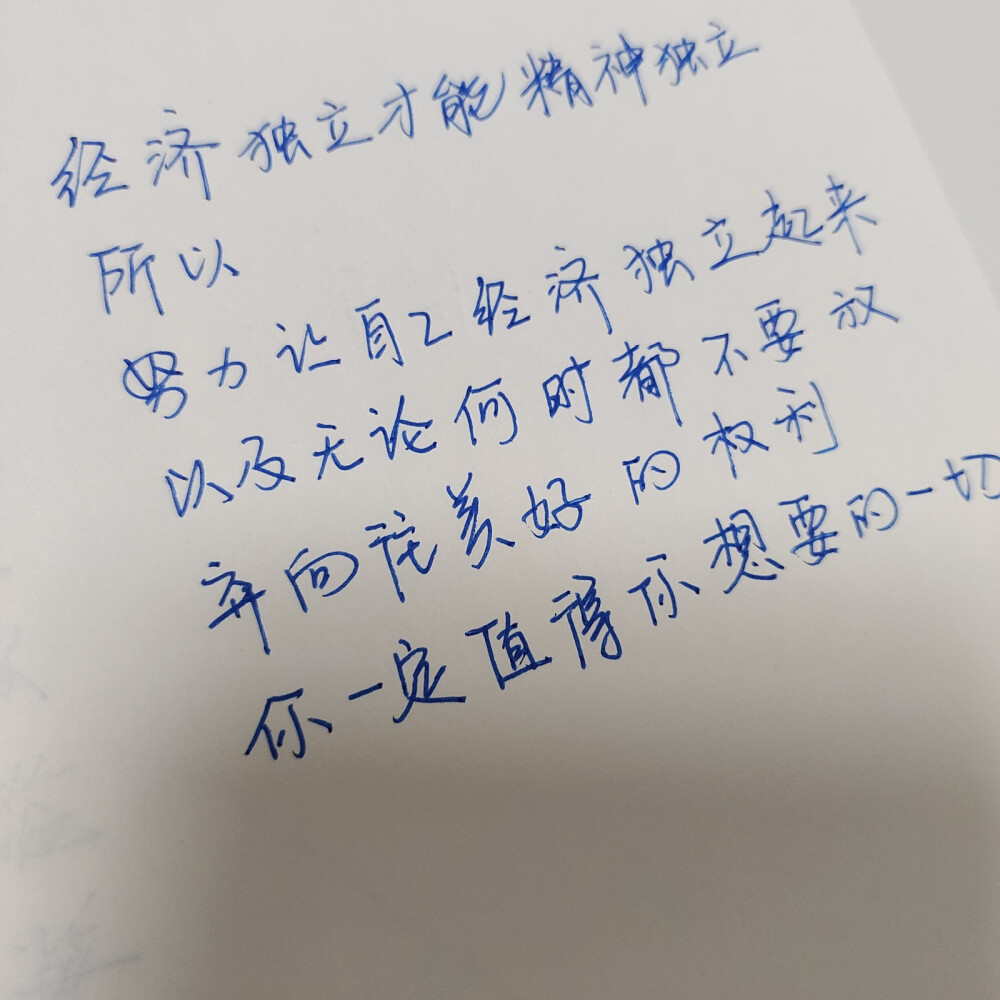 经济独立才能精神独立
所以
努力让自己经济独立起来
以及无论何时都不要放
弃向往美好的权利
你一定值得你想要的一切